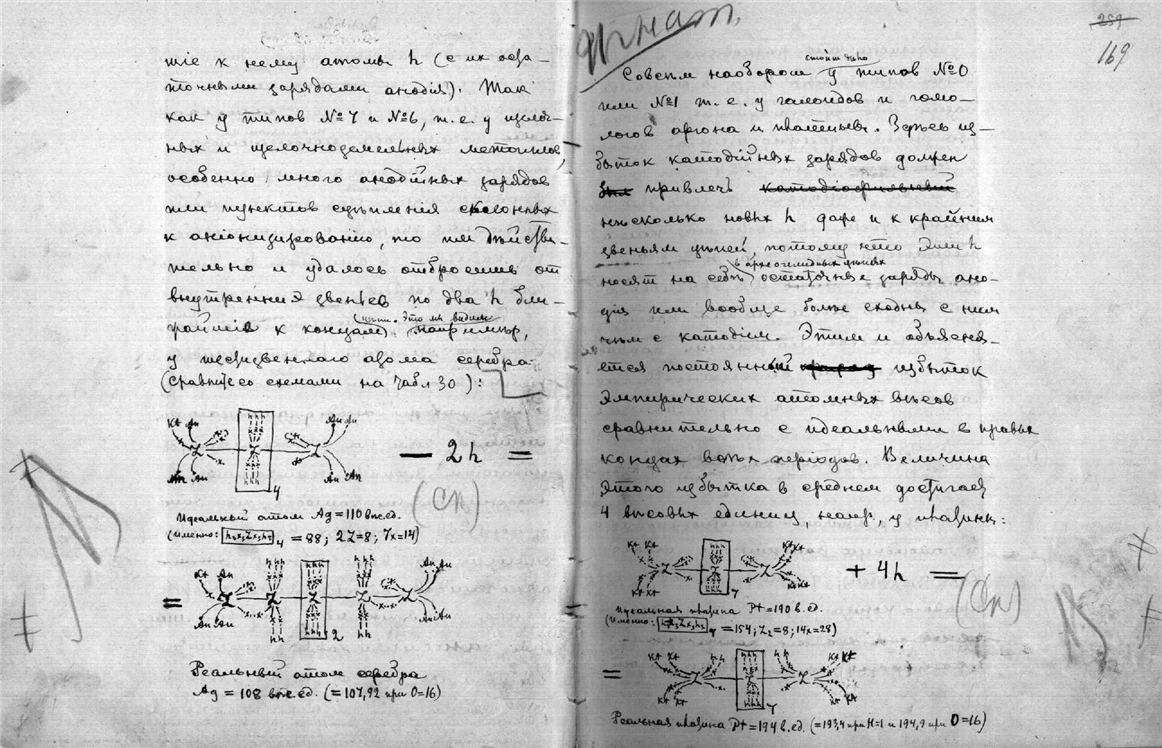 тіе к нему атомы h (с их оста-
точными зарядами анодія). Так
как у типов №7 и №6, т.е. у щелоч-
ных и щелочноземельных металлов,
особенно много анодійных зарядов
или пунктов сцѣпленія склонных
к аніонизированію, то им дѣйстви-
тельно и удалось отбросить от
внутренних звеньев по два h бли-
жайшіе к концам цѣпи. Это мы видим, напримѣр,
у пятизвенного атома серебра
(сравните со схемами на табл 30):
Kt An An An
An An An An
4
— 2h =
(Сп)
Идеальный атом Ag = 110 вѣс.ед.
(именно: 4 = 88; 2Z=8; 7x=14)
= Kt An An An
An An An An
2
Реальный атом серебра
Ag = 108 вѣс.ед. (=107,92 при O=16)
Игнат.
259
169
Совсѣм наоборот у типов №0
или №1 т.е. у галоидов и гомо-
логов аргона и платины. Здѣсь из-
быток катодійных зарядов должен
привлечь
нѣсколько новых h даже и к крайним
звеньям цѣпей, потому что эти h
носят на себѣ остаточные заряды ано-
дія или вообще болѣе сходны с ним
чѣм с катодіем. Этим и объясня-
ется постоянный избыток
эмпирических атомных вѣсов
сравнительно с идеальными в правых
концах всѣх періодов. Величина
этого избытка в среднем достигает
4 вѣсовых единиц, напр, у платины:
Kt Kt Kt Kt
Kt Kt Kt Kt
7
+ 4h =
(Сп)
Идеальная платина Pt = 190 в.ед.
(именно: = 154; Z₂ = 8; 14x=28)
= Kt Kt h h h h Kt Kt
Kt Kt Kt Kt
7
Реальная платина Pt = 194 в.ед. (=193,4 при H=1 и 194,9 при O=16)